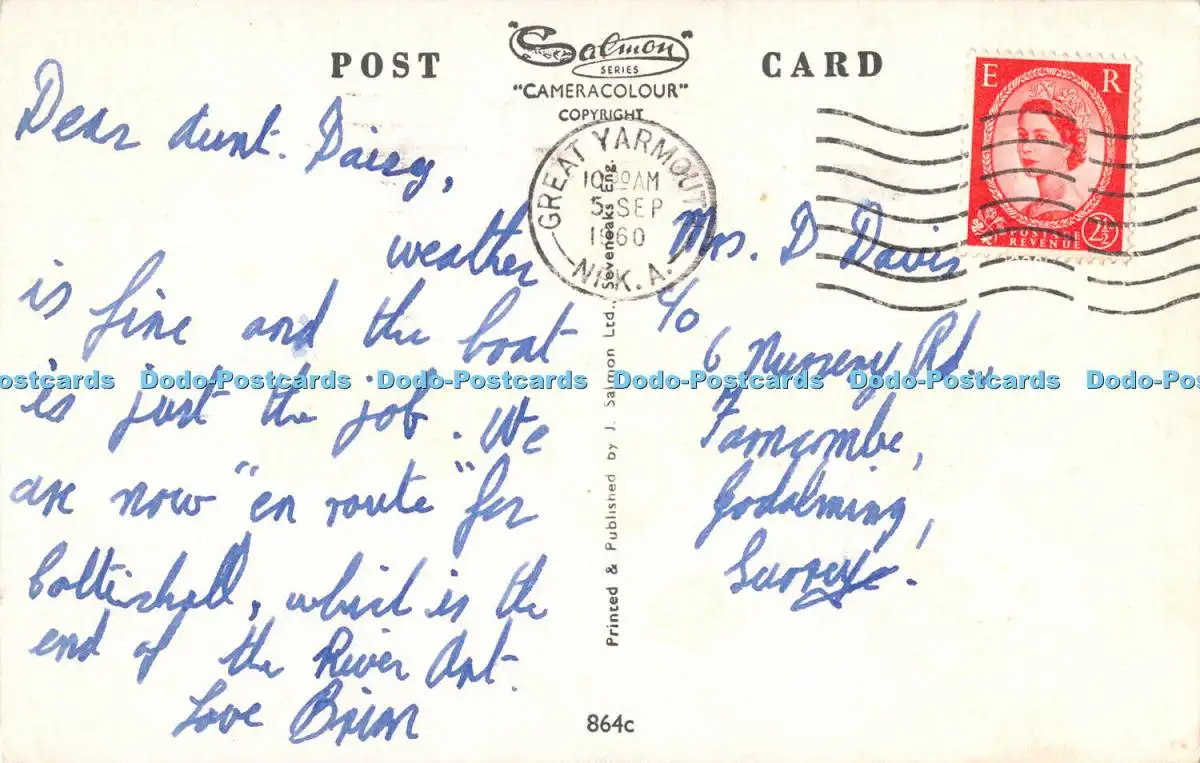 POST CARD
"Salmon"
SERIES
"CAMERACOLOUR"
COPYRIGHT
E R
POSTAGE
REVENUE
2½
GREAT YARMOUTH
10 30 AM
5 SEP
1960
NFK. A.
Dear Aunt. Daisy,
weather
is fine and the boat
is just the job. We
are now "en route" for
Coltishall, which is the
end of the River Ant.
Love Brian
Mrs. D Davis
c/o
6 Nursery Rd.,
Farncombe,
Godalming,
Surrey.
Printed & Published by J. Salmon Ltd., Sevenoaks Eng.
864c
Dodo-Postcards Dodo-Postcards Dodo-Postcards Dodo-Postcards Dodo-Postcards Dodo-Postcards